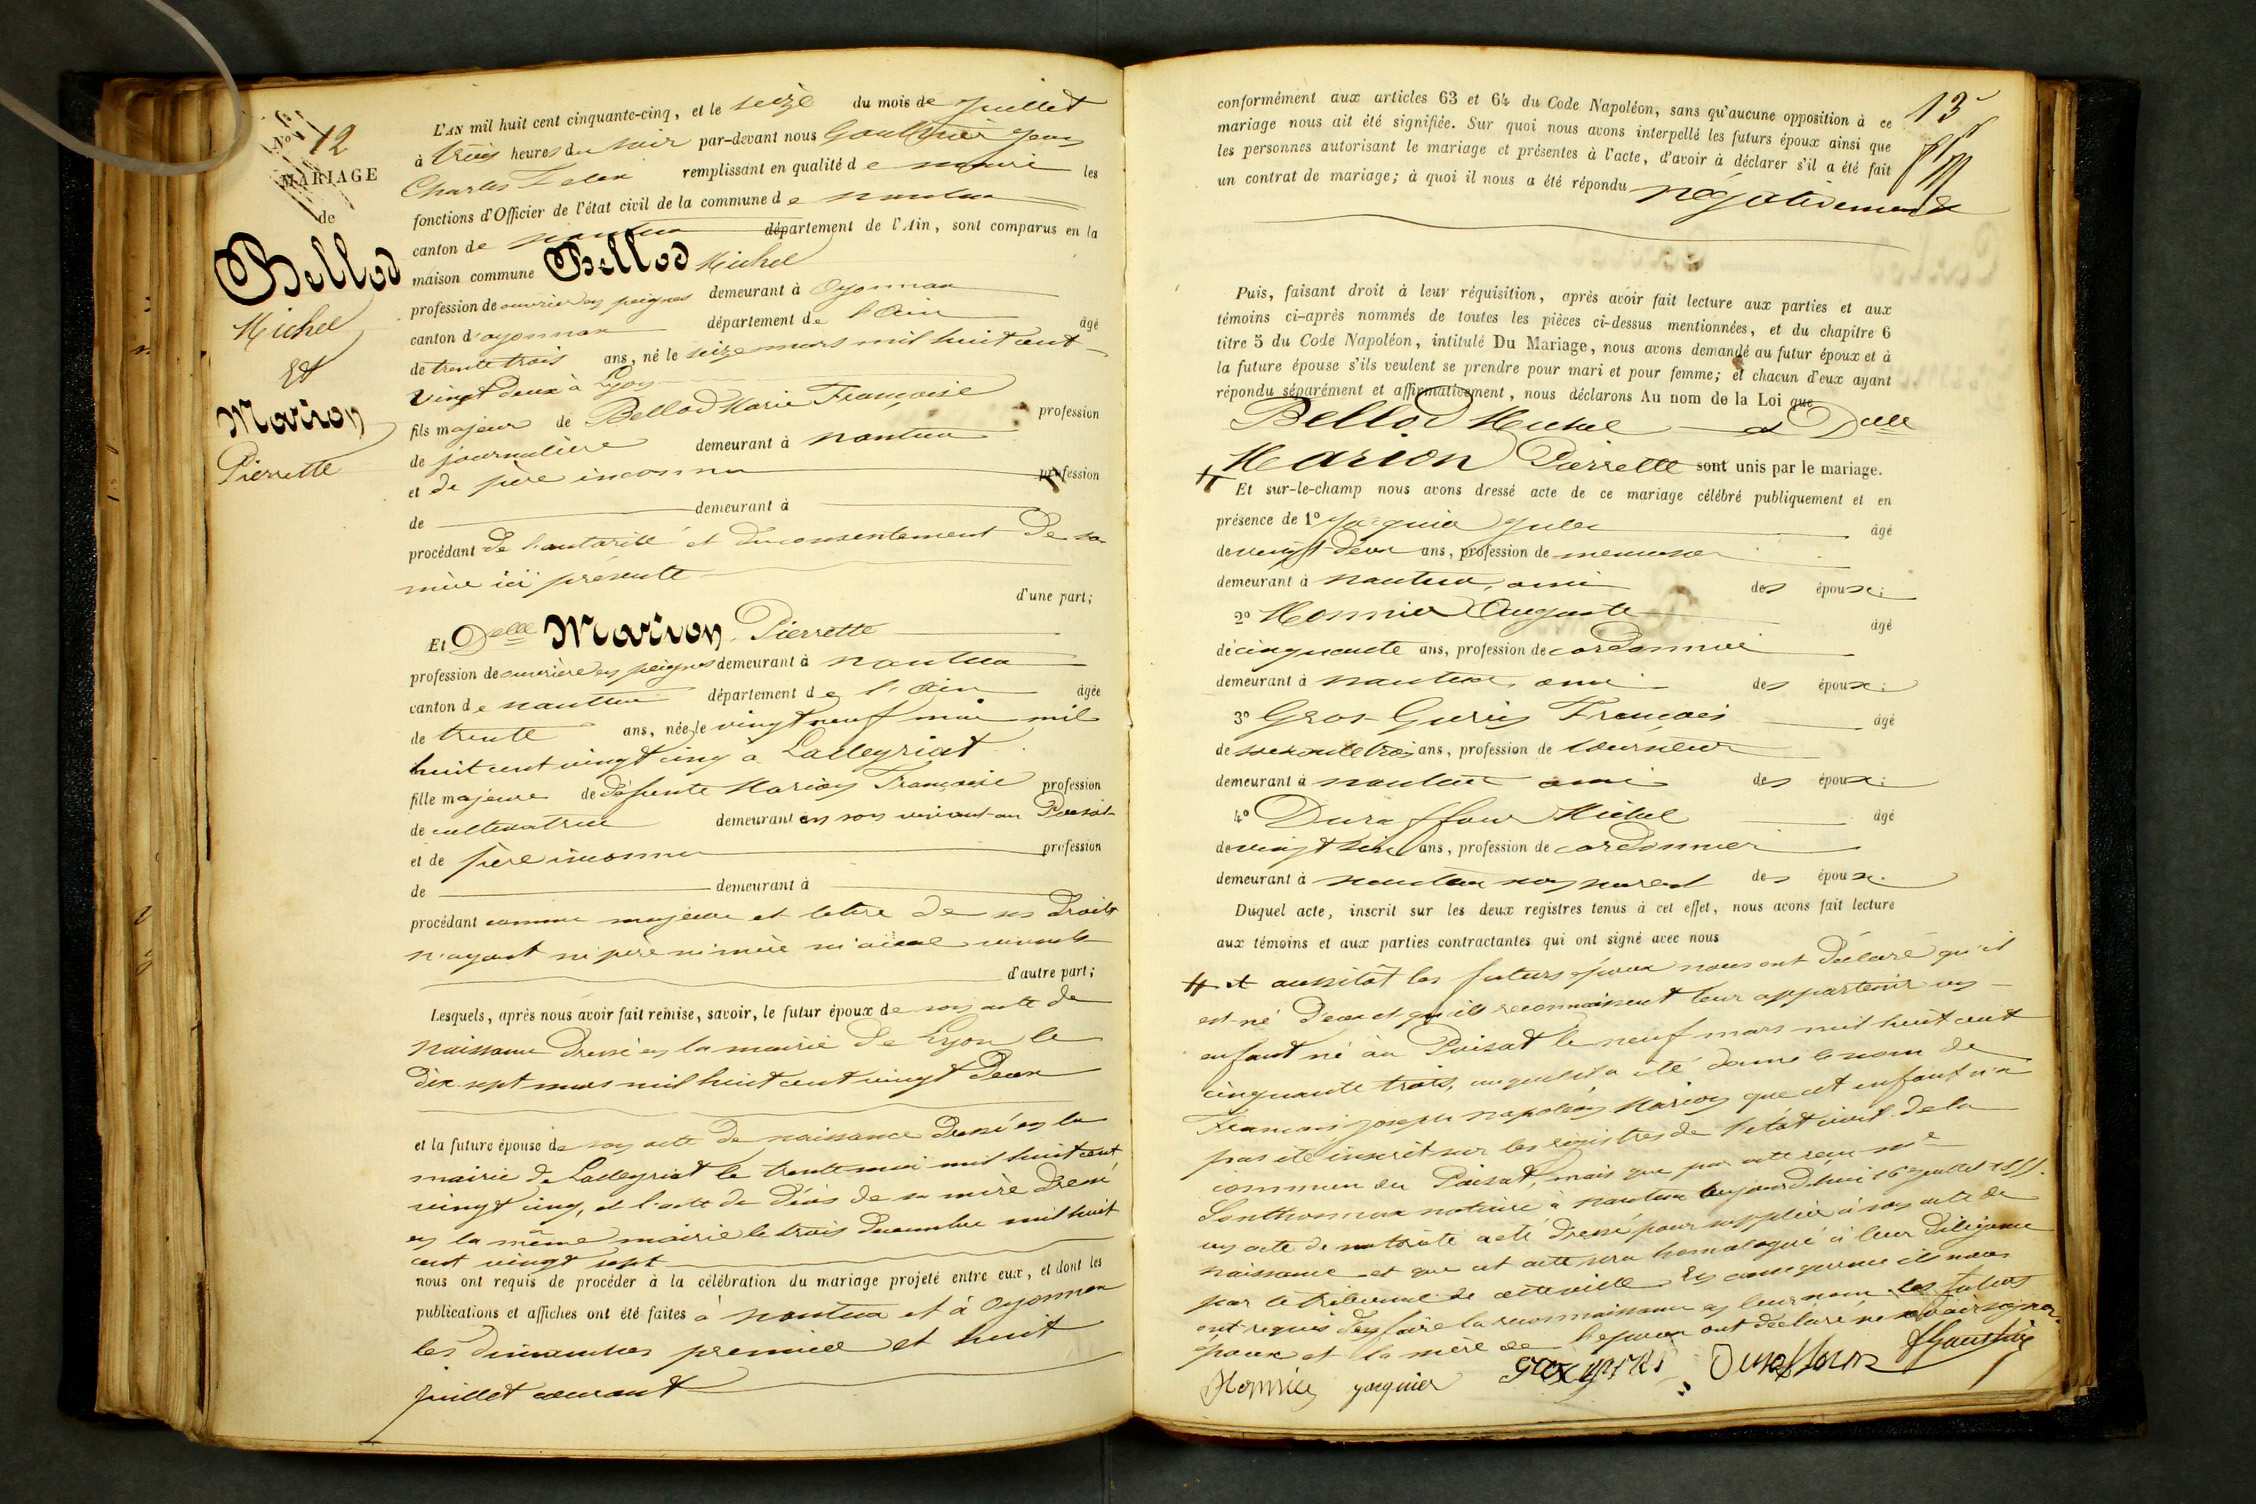 No 12
MARIAGE
de
Bellod
Michel
Et
Marion
Pierrette
L'AN mil huit cent cinquante-cinq, et le seize du mois de juillet
à trois heures du soir par-devant nous Gauthier Jean
Charles Felix remplissant en qualité de maire les
fonctions d'Officier de l'état civil de la commune de nantua
canton de nantua département de l'Ain, sont comparus en la
maison commune Bellod Michel
profession de ouvrier en peignes demeurant à Oyonnax
canton d'oyonnax département de l'Ain âgé
de trente trois ans, né le seize mars mil huit cent
vingt deux à Lyon
fils majeur de Bellod Marie Françoise profession
de journalière demeurant à nantua
et de père inconnu profession
de demeurant à
procédant de l'autorité et du consentement de sa
mère ici présente
d'une part;
Et Delle Marion Pierrette
profession de ouvrière en peignes demeurant à nantua
canton de nantua département de l'Ain âgée
de trente ans, née le vingt neuf mai mil
huit cent vingt cinq à Lalleyriat
fille majeure de défunte Marion Françoise profession
de cultivatrice demeurant en son vivant au Poisat
et de père inconnu profession
de demeurant à
procédant comme majeure et libre de ses droits
n'ayant ni père ni mère ni aïeul vivants
d'autre part;
Lesquels, après nous avoir fait remise, savoir, le futur époux de son acte de
naissance dressé en la mairie de Lyon le
dix sept mars mil huit cent vingt deux
et la future épouse de son acte de naissance dressé en la
mairie de Lalleyriat le trente mai mil huit cent
vingt cinq, et l'acte de décès de sa mère dressé
en la même mairie le trois décembre mil huit
cent vingt sept
nous ont requis de procéder à la célébration du mariage projeté entre eux, et dont les
publications et affiches ont été faites à nantua et à Oyonnax
les dimanches premier et huit
juillet courant
13
conformément aux articles 63 et 64 du Code Napoléon, sans qu'aucune opposition à ce
mariage nous ait été signifiée. Sur quoi nous avons interpellé les futurs époux ainsi que
les personnes autorisant le mariage et présentes à l'acte, d'avoir à déclarer s'il a été fait
un contrat de mariage; à quoi il nous a été répondu négativement
Puis, faisant droit à leur réquisition, après avoir fait lecture aux parties et aux
témoins ci-après nommés de toutes les pièces ci-dessus mentionnées, et du chapitre 6
titre 5 du Code Napoléon, intitulé Du Mariage, nous avons demandé au futur époux et à
la future épouse s'ils veulent se prendre pour mari et pour femme; et chacun d'eux ayant
répondu séparément et affirmativement, nous déclarons Au nom de la Loi que
Bellod Michel et Delle
Marion Pierrette sont unis par le mariage.
Et sur-le-champ nous avons dressé acte de ce mariage célébré publiquement et en
présence de 1° Jacquier Jules âgé
de vingt deux ans, profession de menuisier
demeurant à nantua, ami des époux;
2° Monnier Auguste âgé
de cinquante ans, profession de cordonnier
demeurant à nantua, ami des époux;
3° Gros-Gurin François âgé
de soixante trois ans, profession de tourneur
demeurant à nantua ami des époux;
4° Duraffour Michel âgé
de vingt six ans, profession de cordonnier
demeurant à nantua non parent des époux.
Duquel acte, inscrit sur les deux registres tenus à cet effet, nous avons fait lecture
aux témoins et aux parties contractantes qui ont signé avec nous
et aussitôt les futurs époux nous ont déclaré qu'il
est né d'eux et qu'ils reconnaissent leur appartenir un
enfant né au Poisat le neuf mars mil huit cent
cinquante trois, auquel il a été donné le nom de
François joseph napoléon Marion que cet enfant n'a
pas été inscrit sur les registres de l'état civil de la
commune du Poisat, mais que par acte reçu Me
Sonthonnax notaire à nantua aujourd'hui 16 juillet 1855.
un acte de notoriété a été dressé pour suppléer à son acte de
naissance et que cet acte sera homologué à leur diligence
par le tribunal de cette ville. En conséquence ils nous
ont requis d'en faire la reconnaissance en leur nom. les futurs
époux et la mère de l'époux ont déclaré ne savoir signer
Monnier jacquier Duraffour Gauthier